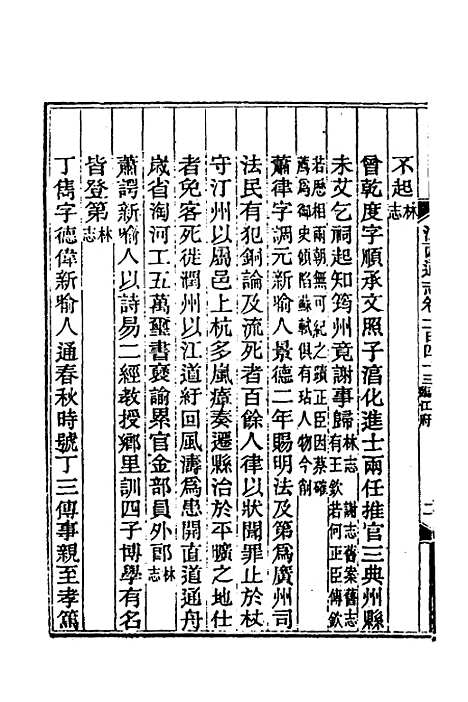 不起林志
曾乾度字順承文照子淯化進士兩任推官三典州縣
未艾乞祠起知筠州竟謝事歸林志謝志舊案舊志有王欽若何正臣傳欽
若歷相兩朝無可紀之蹟正臣因蔡確薦爲御史傾陷蘇軾俱有玷人物今削
蕭律字調元新喻人景德二年賜明法及第爲廣州司
法民有犯銅論及流死者百餘人律以狀聞罪止於杖
守汀州以屬邑上杭多嵐瘴奏遷縣治於平曠之地仕
者免客死徙潤州以江道紆回風濤爲患開直道通舟
歲省淘河工五萬璽書褒諭累官金部員外郎林志
蕭諤新喻人以詩易二經教授鄉里訓四子博學有名
皆登第林志
丁雋字德偉新喻人通春秋時號丁三傳事親至孝篤
江西通志卷一百四十三臨江府 二